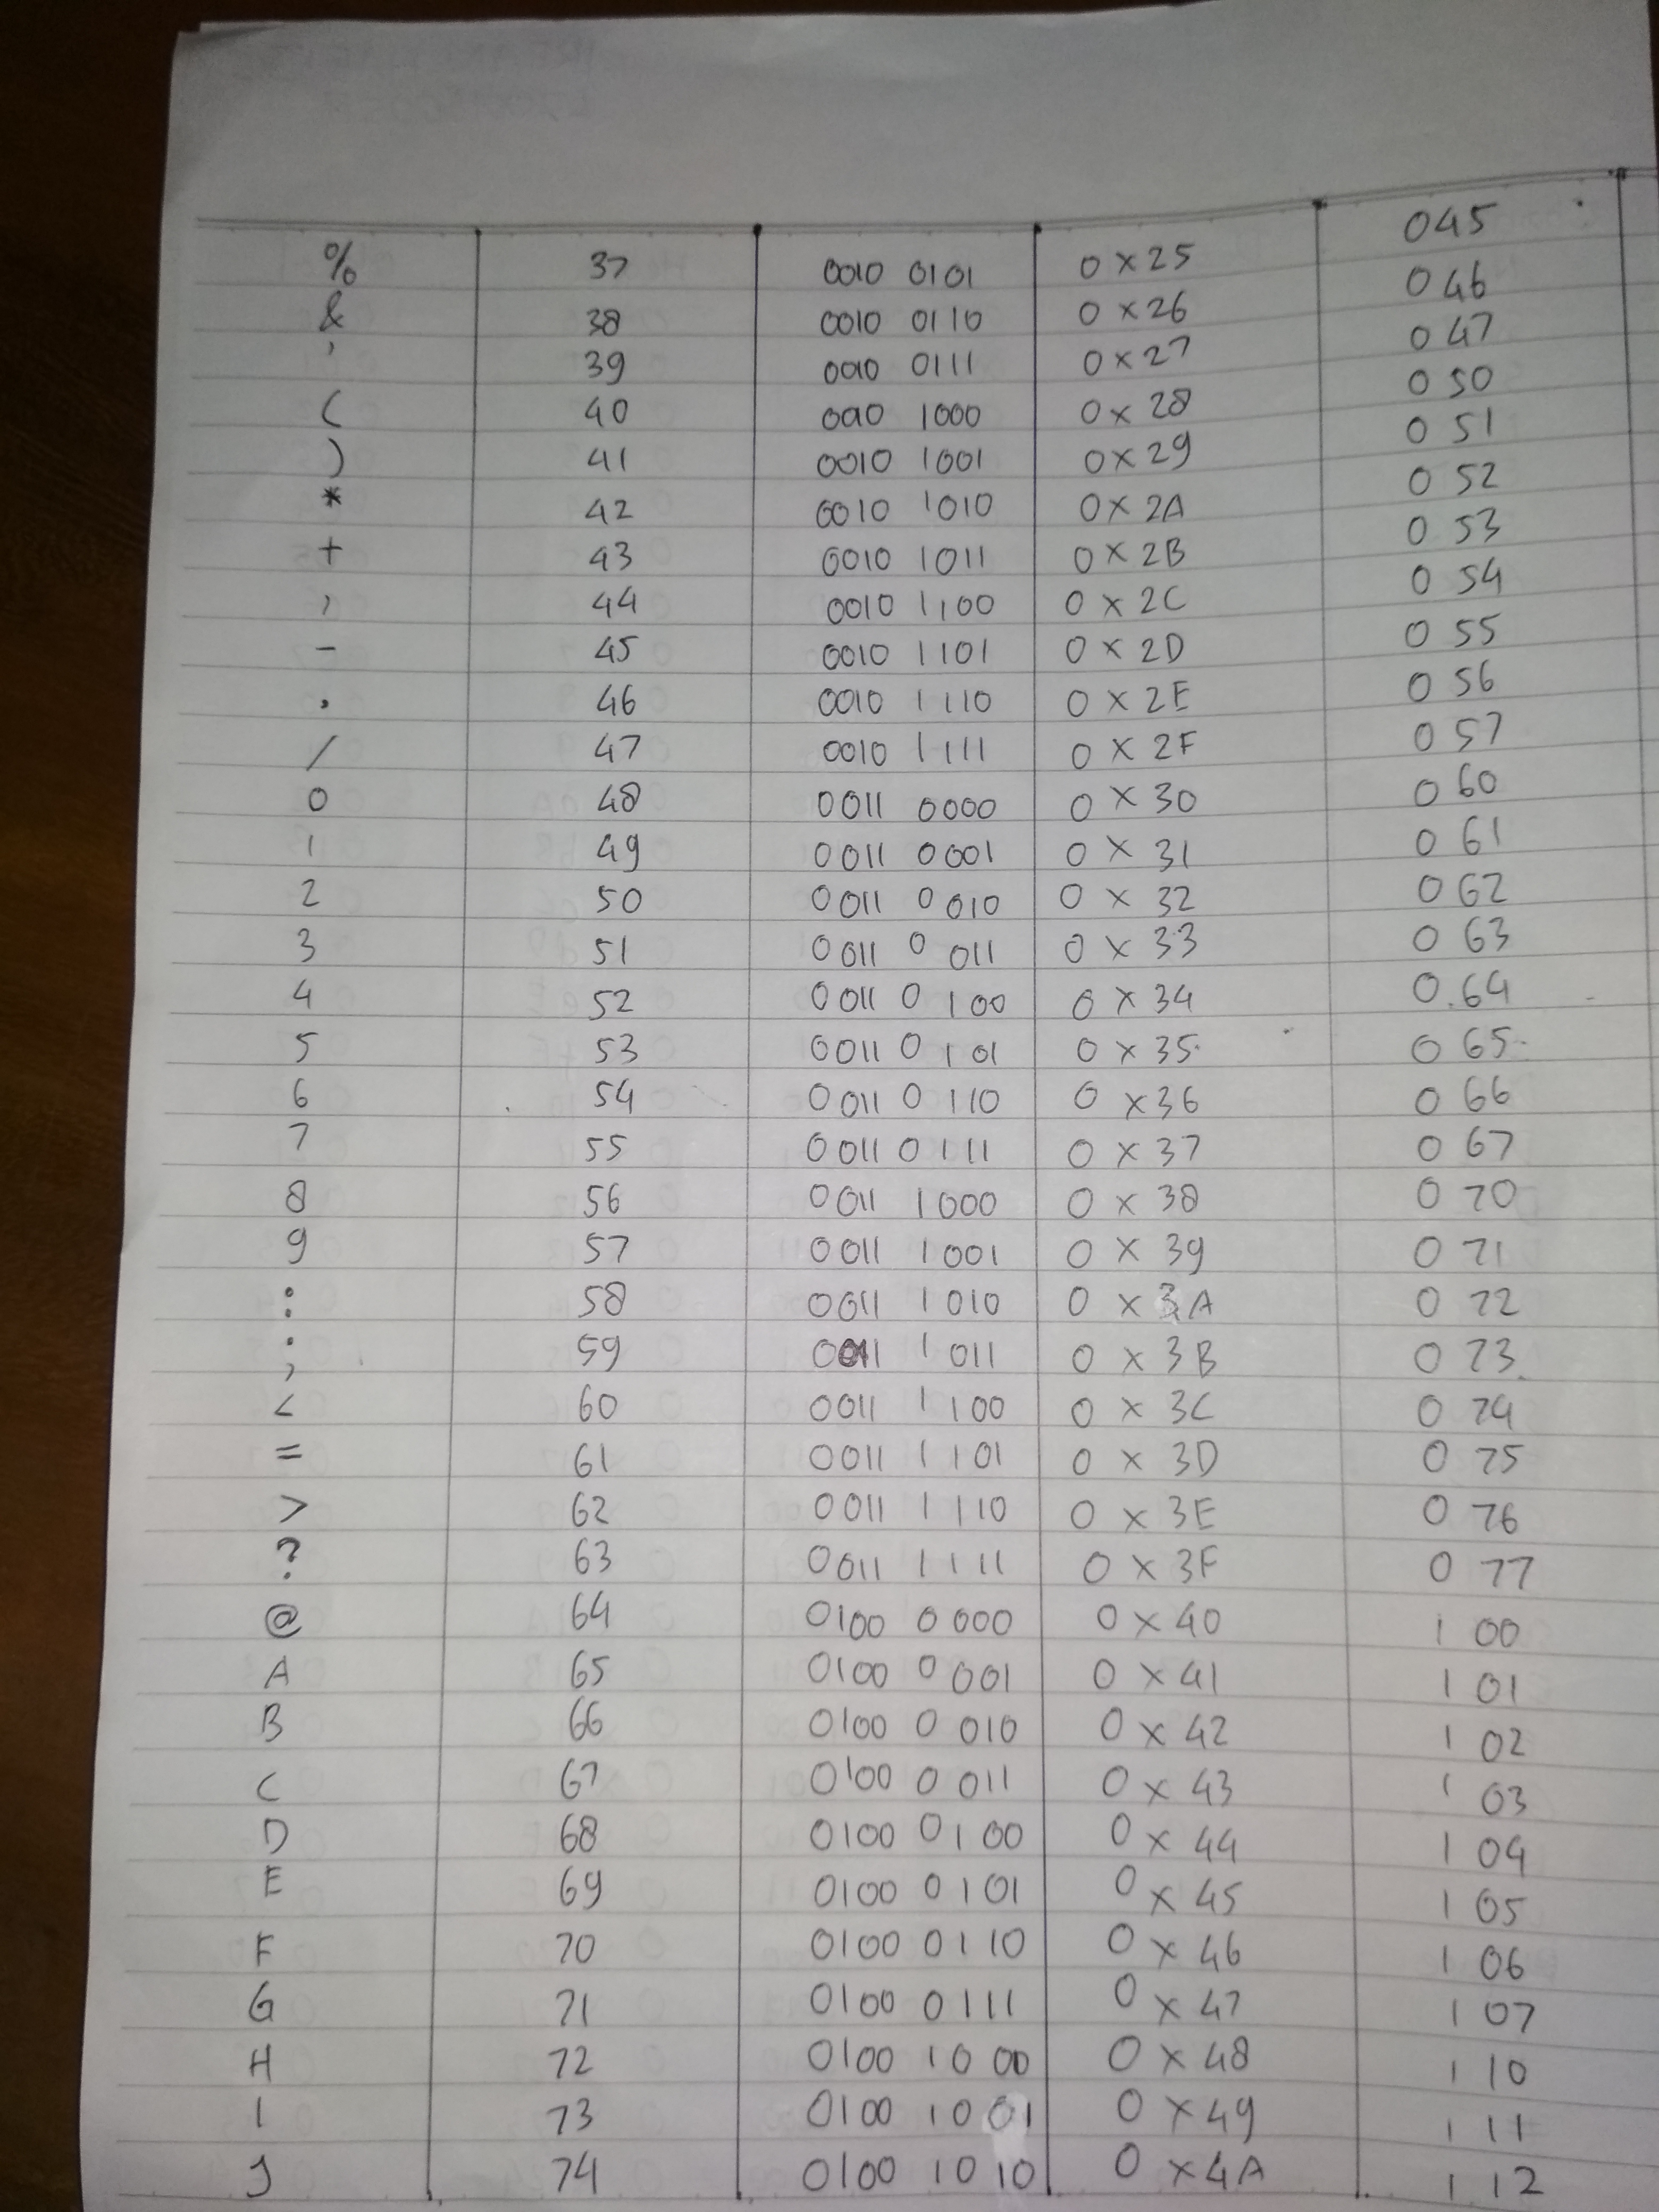 % 37 0010 0101 0x25 045
& 38 0010 0110 0x26 046
' 39 0010 0111 0x27 047
( 40 0010 1000 0x28 050
) 41 0010 1001 0x29 051
* 42 0010 1010 0x2A 052
+ 43 0010 1011 0x2B 053
, 44 0010 1100 0x2C 054
- 45 0010 1101 0x2D 055
. 46 0010 1110 0x2E 056
/ 47 0010 1111 0x2F 057
0 48 0011 0000 0x30 060
1 49 0011 0001 0x31 061
2 50 0011 0010 0x32 062
3 51 0011 0011 0x33 063
4 52 0011 0100 0x34 064
5 53 0011 0101 0x35 065
6 54 0011 0110 0x36 066
7 55 0011 0111 0x37 067
8 56 0011 1000 0x38 070
9 57 0011 1001 0x39 071
: 58 0011 1010 0x3A 072
; 59 0011 1011 0x3B 073
< 60 0011 1100 0x3C 074
= 61 0011 1101 0x3D 075
> 62 0011 1110 0x3E 076
? 63 0011 1111 0x3F 077
@ 64 0100 0000 0x40 100
A 65 0100 0001 0x41 101
B 66 0100 0010 0x42 102
C 67 0100 0011 0x43 103
D 68 0100 0100 0x44 104
E 69 0100 0101 0x45 105
F 70 0100 0110 0x46 106
G 71 0100 0111 0x47 107
H 72 0100 1000 0x48 110
I 73 0100 1001 0x49 111
J 74 0100 1010 0x4A 112